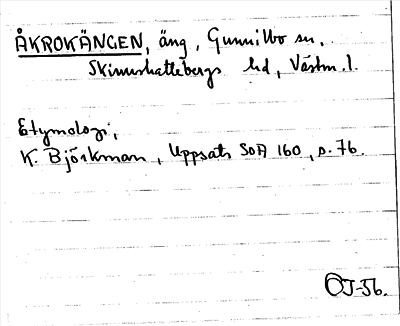 ÅKROKÄNGEN, äng, Gunnilbo sn,
Skinnskattebergs hd, Västm. l.
Etymologi,
K. Björkman, Uppsats SOA 160, s. 76.
OJ-56.